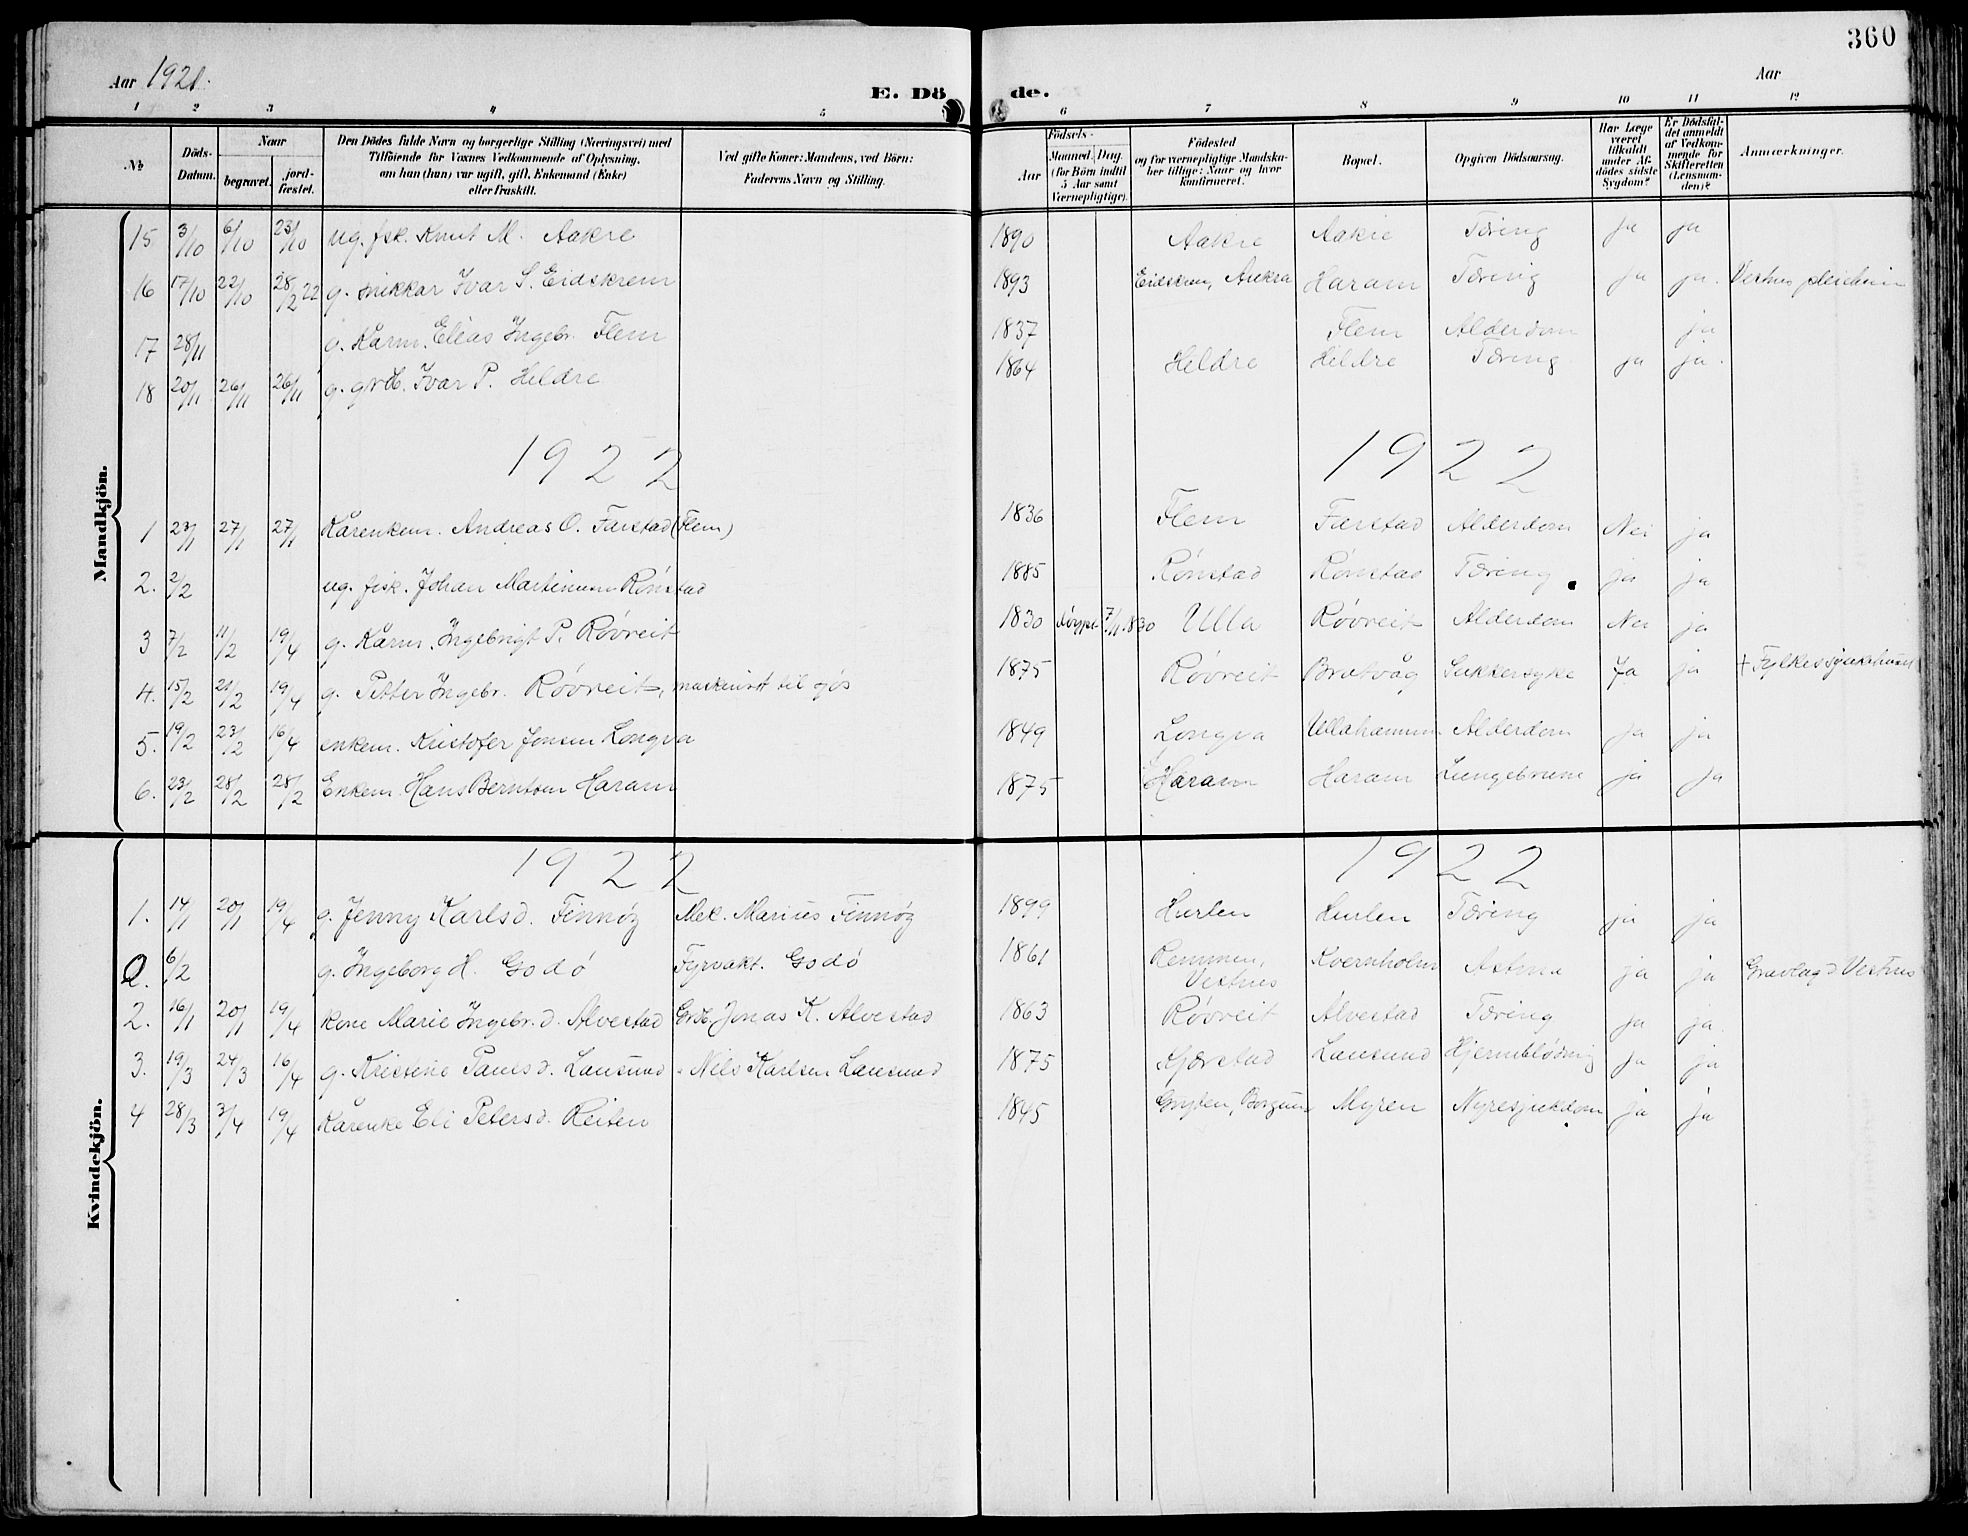 360
Aar 1921.
E. Dö de.
Aar
1 2 3 4 5 6 7 8 9 10 11 12
No
Döds-Datum.
Naar
begravet.
jordfæstet.
Den Dödes fulde Navn og borgerlige Stilling (Næringsvei) med
Tilföiende for Voxnes Vedkommende af Oplysning,
om han (hun) var ugift, gift, Enkemand (Enke)
eller fraskilt.
Ved gifte Koner: Mandens, ved Börn:
Faderens Navn og Stilling.
Födsels-
Aar
Maaned. Dag.
(for Börn indtil
5 Aar samt
Værnepligtige).
Födested
og for værnepligtige Mandskaber
tillige: Naar og hvor
konfirmeret.
Bopæl.
Opgiven Dödsaarsag.
Har Læge
været
tilkaldt
under Afdödes
sidste
Sygdom?
Er Dödsfaldet
anmeldt
af Vedkommende
for
Skifteretten
(Lensmanden)?
Anmærkninger.
Mandkjön.
15 3/10 6/10 23/10 ug. fsk. Knut M. Aakre 1890 Aakre Aakre Tæring ja ja
16 17/10 22/10 28/2 22 g. snikkar Ivar S. Eidskrem 1893 Eidskrem, Aukra Haram Tæring ja ja.
17 28/11 g. Kårm. Elias Ingebr. Flem 1837 Flem Alderdom ja
18 20/11 26/11 26/11 g. grdb. Ivar P. Heldre 1864 Heldre Heldre Tæring ja ja
1922 1922
1 23/1 27/1 27/1 Kårenkem. Andreas O. Farstad (Flem) 1836 Flem Farstad Alderdom Nei ja
2. 2/2 ug. fisk. Johan Martinus Rönstad 1885 Rönstad Rönstad Tæring ja ja
3 7/2 11/2 19/4 g. Kårm. Ingebrigt P. Rövreit 1830 döypt 7/11 1830 Ulla Rövreit Alderdom Nei ja
4. 15/2 21/2 19/4 g. Petter Ingebr. Rövreit, maskinist til sjös 1875 Rövreit Bratvåg Sukkersyke Ja ja + Fylkessjukehuset
5. 19/2 23/2 16/4 enkem. Kristofer Jonsen Longva 1849 Longva Ullahammn Alderdom ja ja
6. 23/2 28/2 28/2 Enkem. Hans Berntsen Haram 1875 Haram Haram Lungebrune ja ja
Kvindekjön.
1922 1922
1. 14/1 20/1 19/4 g. Jenny Karlsd. Finnöy Mek. Marius Finnöy 1899 Hurlen Hurlen Tæring ja ja
Q. 6/2 g. Ingeborg H. Godö Fyrvakt. Godö 1861 Remmen, Vestnes Kvernholm Astma ja ja Gravlagd Vestnes
2. 16/1 20/1 19/4 kone Marie Ingebr.d. Alvestad Grdb. Jonas K. Alvestad 1863 Rövreit Alvestad Tæring ja ja.
3. 19/3 24/3 16/4 g. Kristine Paulsd. Lausund Nils Karlsen Lausund 1875 Kjærstad Lausund Hjerneblödnig ja ja
4 28/3 3/4 19/4 Kårenke Eli Petersd. Reiten 1845 Gryten, Borgund Myren Nyresjukdom ja ja